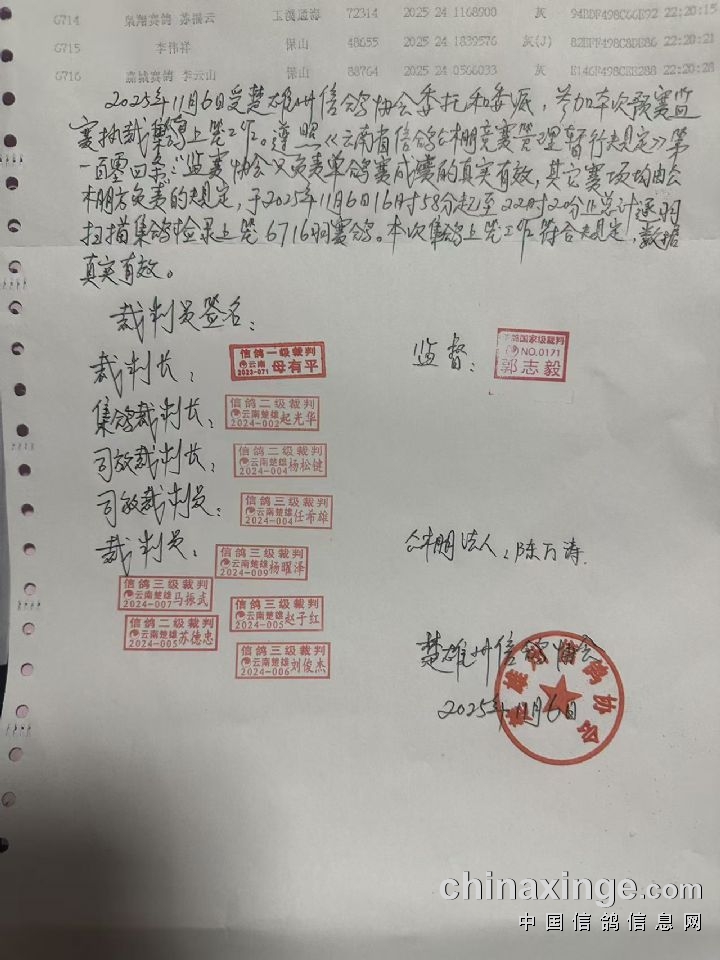 6714 枭翔赛鸽 苏振云 玉溪通海 72314 2025 24 1168900 灰 94BDF498C66E92 22:20:15
6715 李伟祥 保山 48655 2025 24 1839576 灰(J) 82EFF498C8DE86 22:20:21
6716 嘉城赛鸽 李云山 保山 88764 2025 24 0566033 灰 E146F498CEE288 22:20:28
2025年11月6日受楚雄州信鸽协会委托和委派，参加本次预赛监
赛执裁集鸽上笼工作。遵照《云南省信鸽公棚竞赛管理暂行规定》第
一百零四条："监赛协会只负责单鸽赛成绩的真实有效，其它赛项均由公
棚方负责的规定，于2025年11月6日16时58分起至22时20分止总计逐羽
扫描集鸽检录上笼6716羽赛鸽。本次集鸽上笼工作符合规定，数据
真实有效。
裁判员签名：
裁判长： 信鸽一级裁判 云南 2023-071 母有平
监督： 信鸽国家级裁判 NO.0171 郭志毅
集鸽裁判长： 信鸽二级裁判 云南楚雄 2024-002 起光华
司放裁判长： 信鸽二级裁判 云南楚雄 2024-004 杨松健
司放裁判员： 信鸽三级裁判 云南楚雄 2024-004 任希雄
裁判员： 信鸽三级裁判 云南楚雄 2024-009 杨曜泽
公棚法人：陈万涛
信鸽三级裁判 云南楚雄 2024-007 马振武
信鸽三级裁判 云南楚雄 2024-005 赵子红
信鸽二级裁判 云南楚雄 2024-005 苏德忠
信鸽三级裁判 云南楚雄 2024-006 刘俊杰
楚雄州信鸽协会
2025年11月6日
楚雄州信鸽协会
chinaxinge.com
中国信鸽信息网